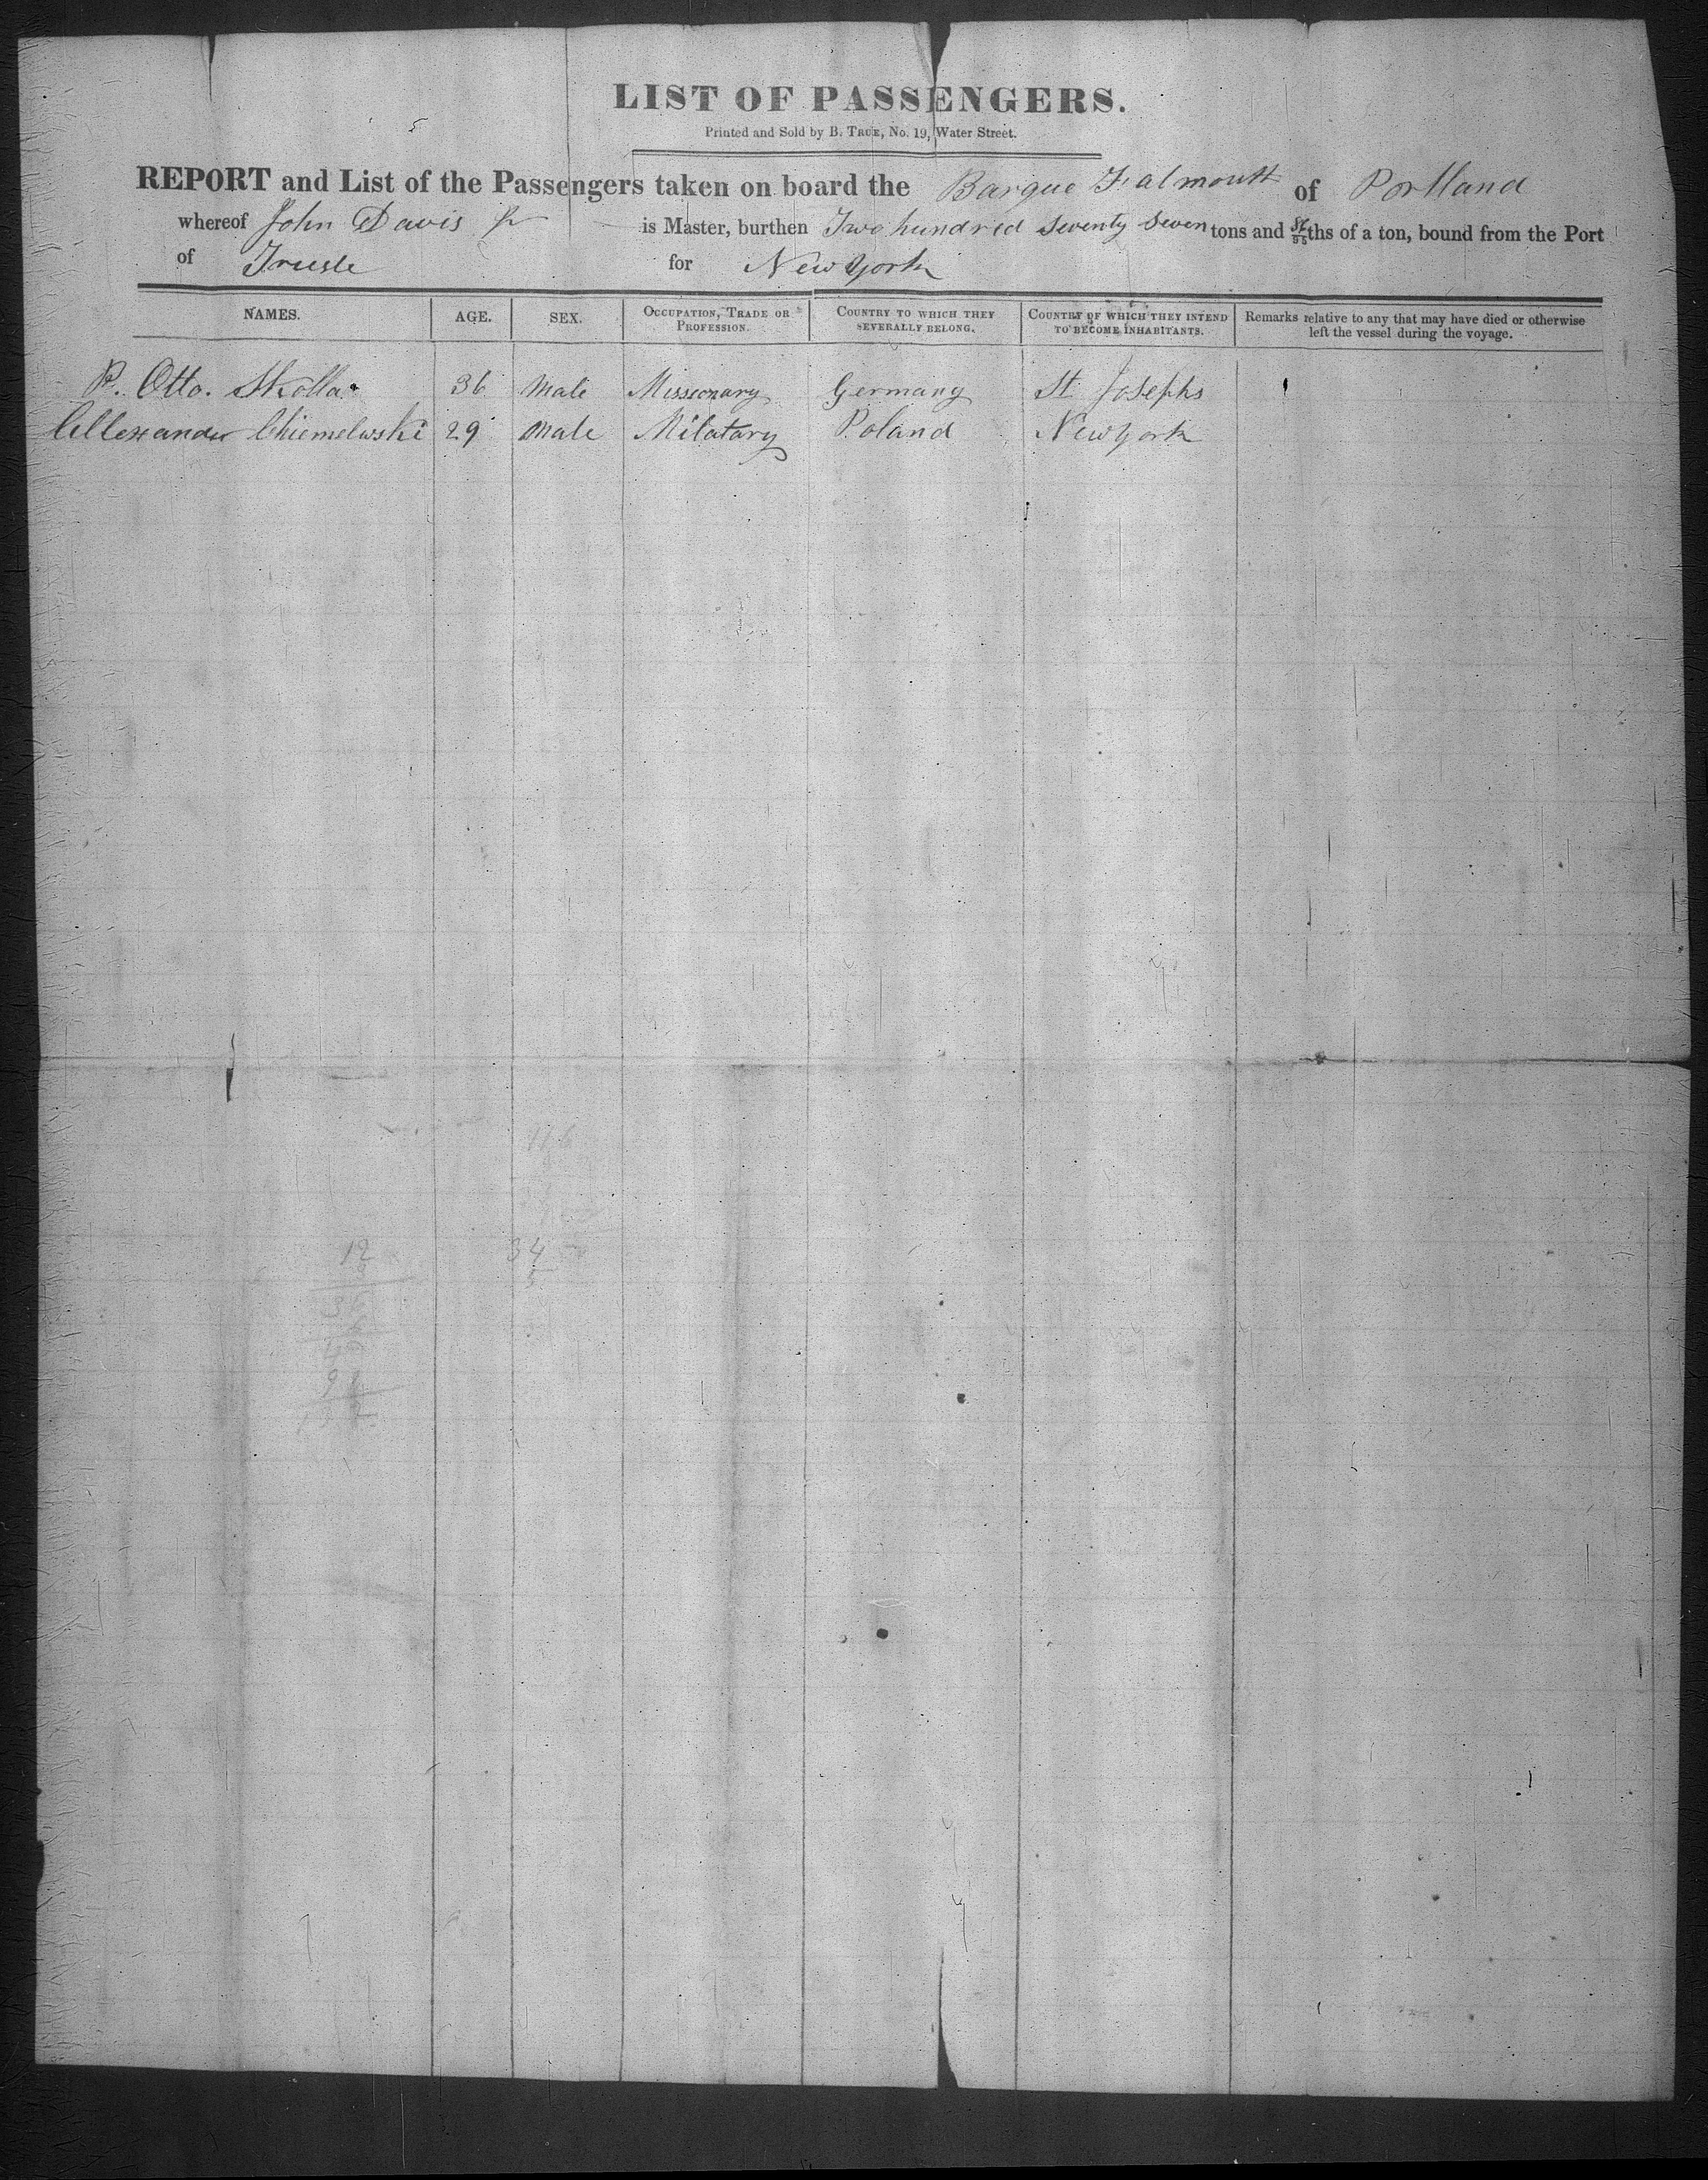 LIST OF PASSENGERS.
Printed and Sold by B. TRUE, No. 19, Water Street.
REPORT and List of the Passengers taken on board the Barque Falmouth of Portland
whereof John Davis Jr is Master, burthen Two hundred Seventy Seven tons and /95ths of a ton, bound from the Port
of Trieste for New York
NAMES. AGE. SEX. OCCUPATION, TRADE OR PROFESSION. COUNTRY TO WHICH THEY SEVERALLY BELONG. COUNTRY OF WHICH THEY INTEND TO BECOME INHABITANTS. Remarks relative to any that may have died or otherwise left the vessel during the voyage.
P. Otto. Skolla 36 Male Missionary Germany St Josephs
Allexander Chiemelwski 29 Male Milatary Poland New York
116
12 34
5